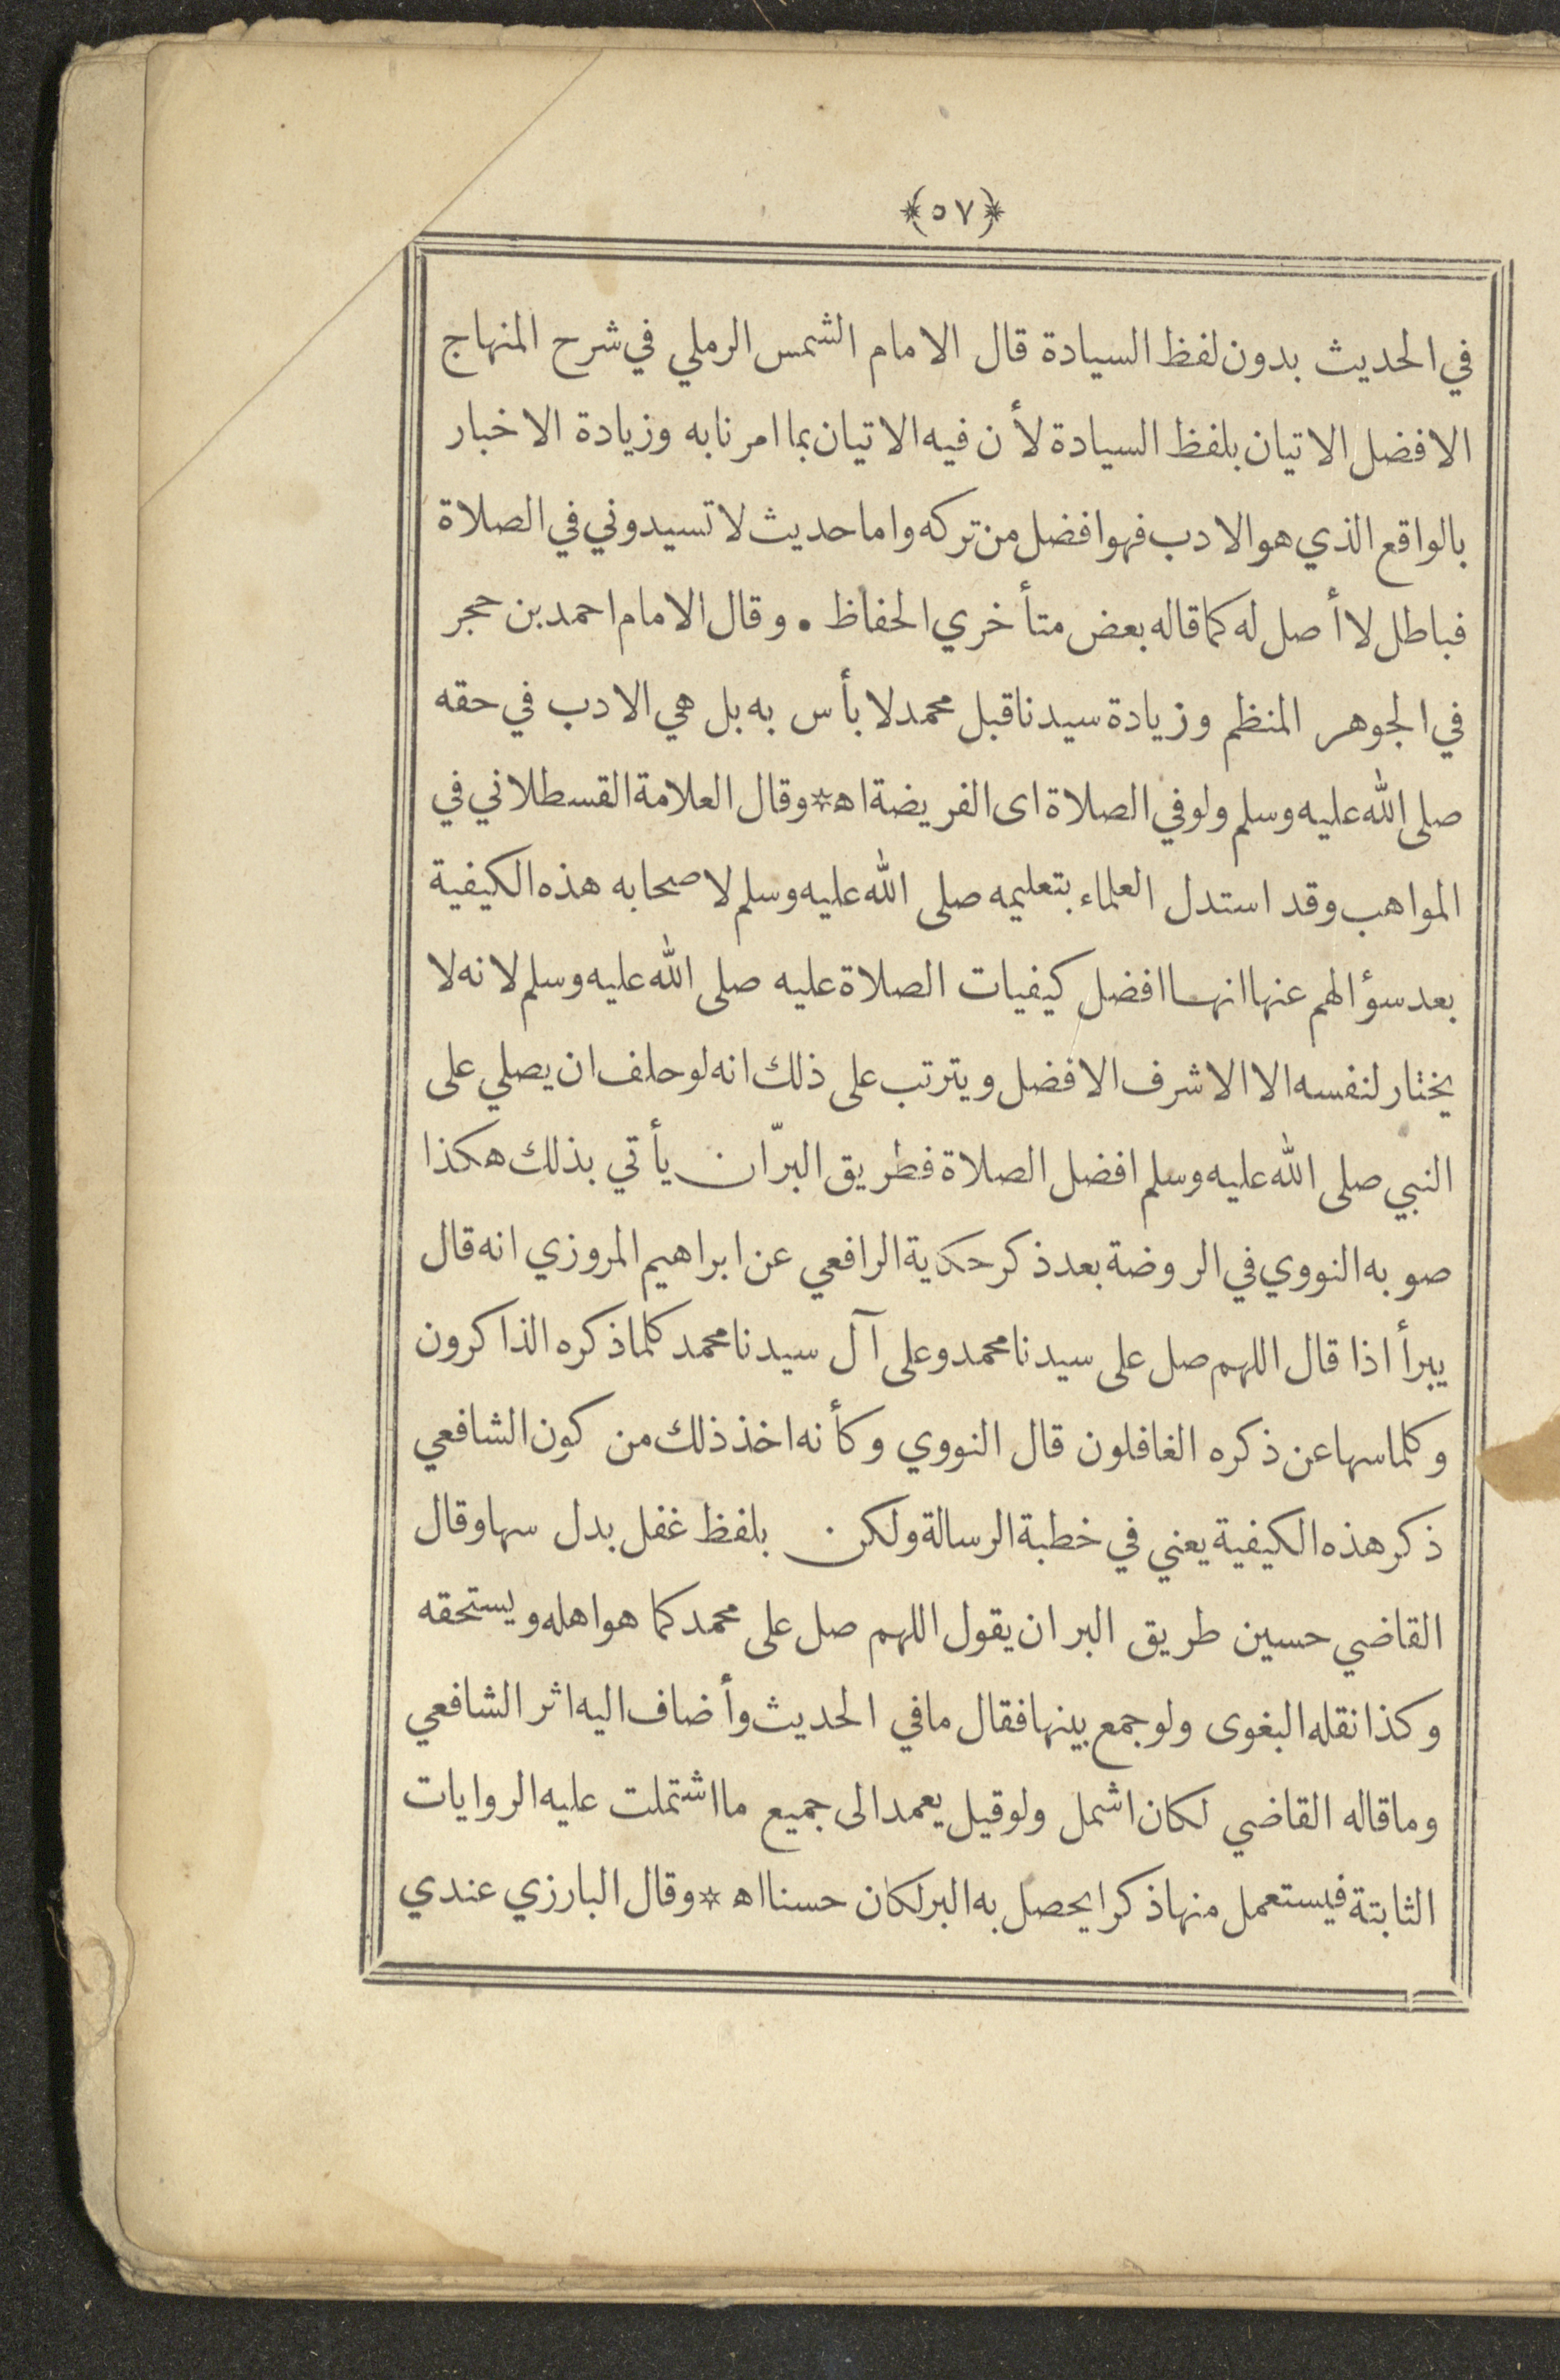 ﴿٥٧﴾
في الحديث بدون لفظ السيادة قال الامام الشمس الرملي في شرح المنهاج
الافضل الاتيان بلفظ السيادة لأن فيه الاتيان بما امرنا به وزيادة الاخبار
بالواقع الذي هو الادب فهو افضل من تركه واما حديث لا تسيدوني في الصلاة
فباطل لا أصل له كما قاله بعض متأخري الحفاظ . وقال الامام احمد بن حجر
في الجوهر المنظم وزيادة سيدنا قبل محمد لا بأس به بل هي الادب في حقه
صلى الله عليه وسلم ولو في الصلاة اى الفريضة اه * وقال العلامة القسطلاني في
المواهب وقد استدل العلماء بتعليمه صلى الله عليه وسلم لاصحابه هذه الكيفية
بعد سؤالهم عنها انها افضل كيفيات الصلاة عليه صلى الله عليه وسلم لانه لا
يختار لنفسه الا الاشرف الافضل ويترتب على ذلك انه لو حلف ان يصلي على
النبي صلى الله عليه وسلم افضل الصلاة فطريق البرّ ان يأتي بذلك هكذا
صوبه النووي في الروضة بعد ذكر حكاية الرافعي عن ابراهيم المروزي انه قال
يبرأ اذا قال اللهم صل على سيدنا محمد وعلى آل سيدنا محمد كلما ذكره الذاكرون
وكلما سها عن ذكره الغافلون قال النووي وكأنه اخذ ذلك من كون الشافعي
ذكر هذه الكيفية يعني في خطبة الرسالة ولكن بلفظ غفل بدل سها وقال
القاضي حسين طريق البر ان يقول اللهم صل على محمد كما هو اهله ويستحقه
وكذا نقله البغوى ولو جمع بينها فقال ما في الحديث وأضاف اليه اثر الشافعي
وما قاله القاضي لكان اشمل ولو قيل يعمد الى جميع ما اشتملت عليه الروايات
الثابتة فيستعمل منها ذكرا يحصل به البر لكان حسنا اه * وقال البارزي عندي